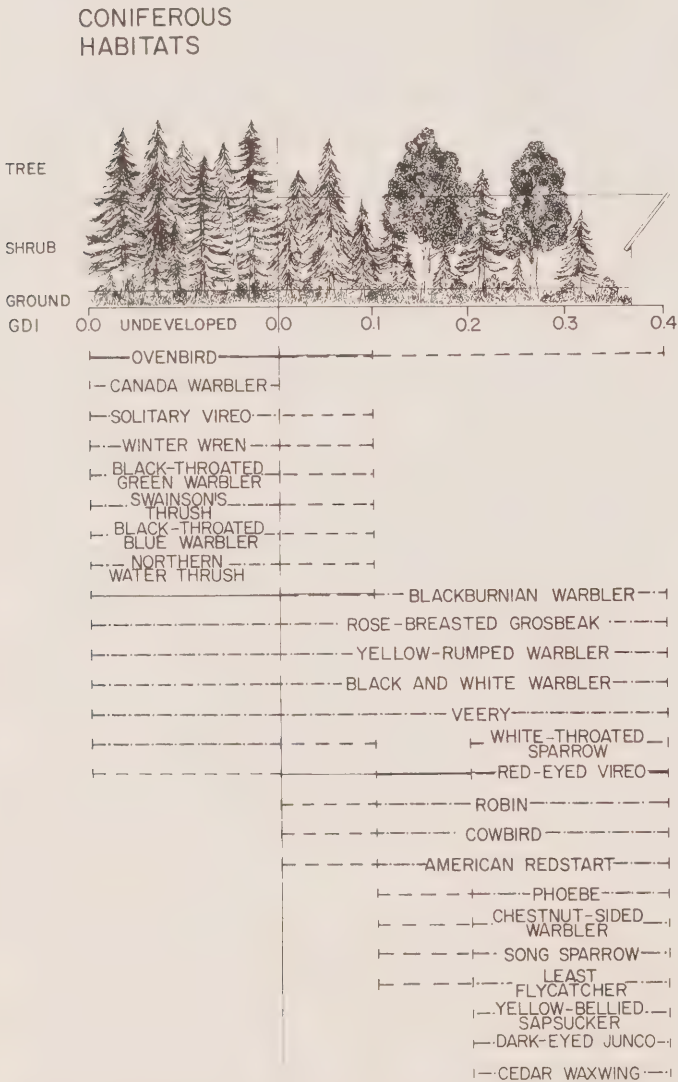 CONIFEROUS
HABITATS
TREE
SHRUB
GROUND
GDI 0.0 UNDEVELOPED 0.0 0.1 0.2 0.3 0.4
OVENBIRD
CANADA WARBLER
SOLITARY VIREO
WINTER WREN
BLACK-THROATED
GREEN WARBLER
SWAINSON'S
THRUSH
BLACK-THROATED
BLUE WARBLER
NORTHERN
WATER THRUSH
BLACKBURNIAN WARBLER
ROSE-BREASTED GROSBEAK
YELLOW-RUMPED WARBLER
BLACK AND WHITE WARBLER
VEERY
WHITE-THROATED
SPARROW
RED-EYED VIREO
ROBIN
COWBIRD
AMERICAN REDSTART
PHOEBE
CHESTNUT-SIDED
WARBLER
SONG SPARROW
LEAST
FLYCATCHER
YELLOW-BELLIED
SAPSUCKER
DARK-EYED JUNCO
CEDAR WAXWING